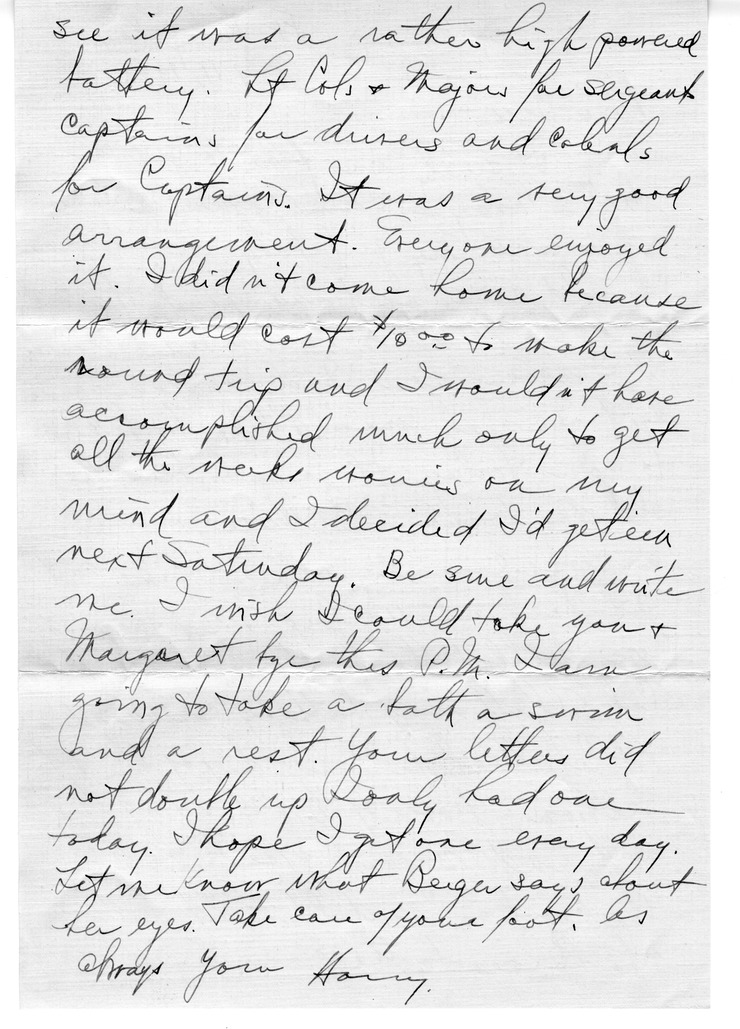 see it was a rather high powered
battery. Lt Cols & Majors for sergeants
captains for drivers and colnels
for Captains. It was a very good
arrangement. Everyone enjoyed
it. I didn't come home because
it would cost $10.00 to make the
round trip and I wouldn't have
accomplished much only to get
all the weeks worries on my
mind and I decided I'd get em
next Saturday. Be sure and write
me. I wish I could take you &
Margaret bye this P.M. I am
going to take a bath a swim
and a rest. Your letters did
not double up I only had one
today. I hope I get one every day.
Let me know what Berger says about
her eyes. Take care of your foot. As
always Your Harry.